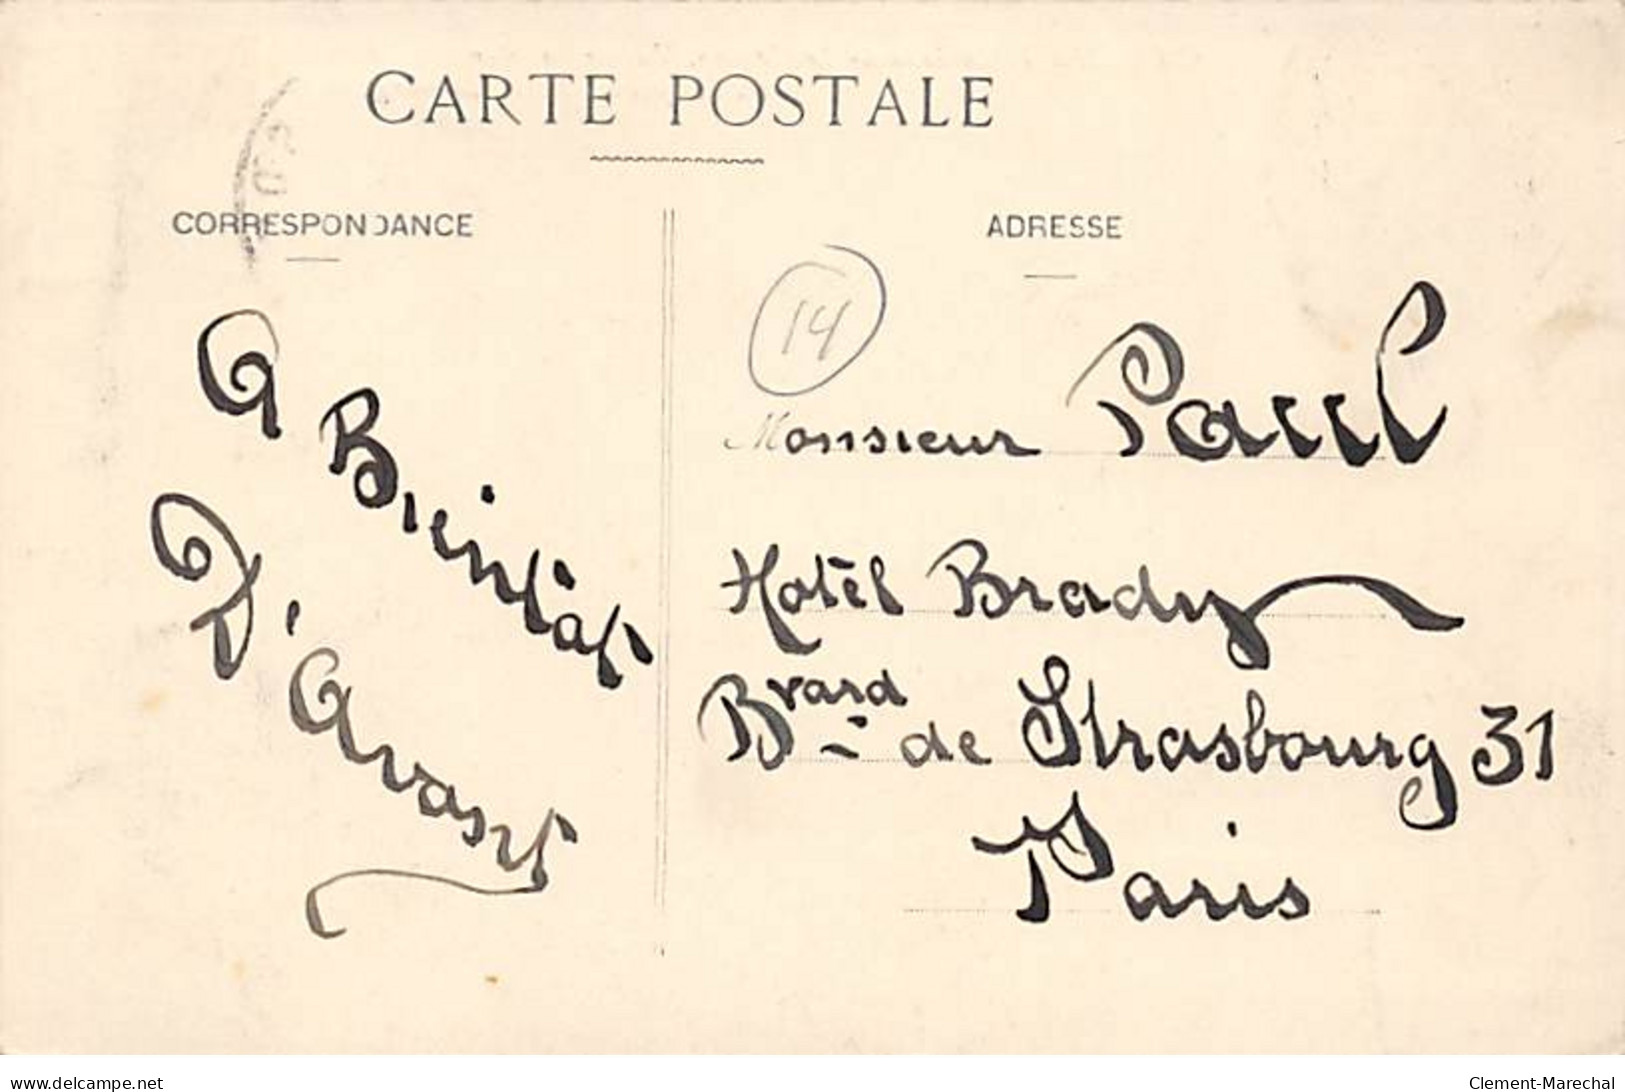 CARTE POSTALE
CORRESPONDANCE
ADRESSE
14
A Bientôt
D'Avant
Monsieur Paul
Hotêl Brady
Bvard de Strasbourg 31
Paris
www.delcampe.net
Clement-Marechal